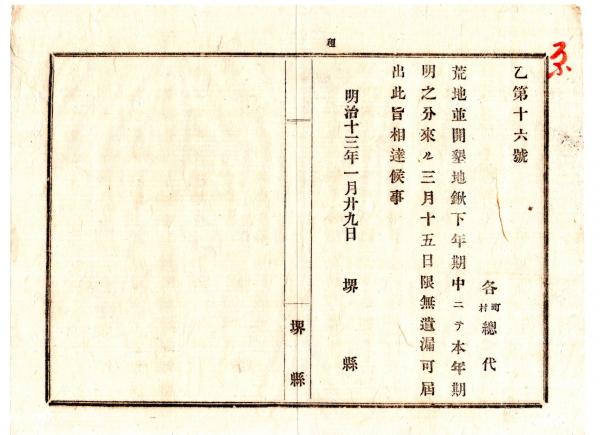 乙第十六號
各町村總代
荒地並開墾地鍬下年期中ニテ本年期
明之分來ル三月十五日限無遺漏可屆
出此旨相達候事
明治十三年一月廿九日 堺縣
堺縣